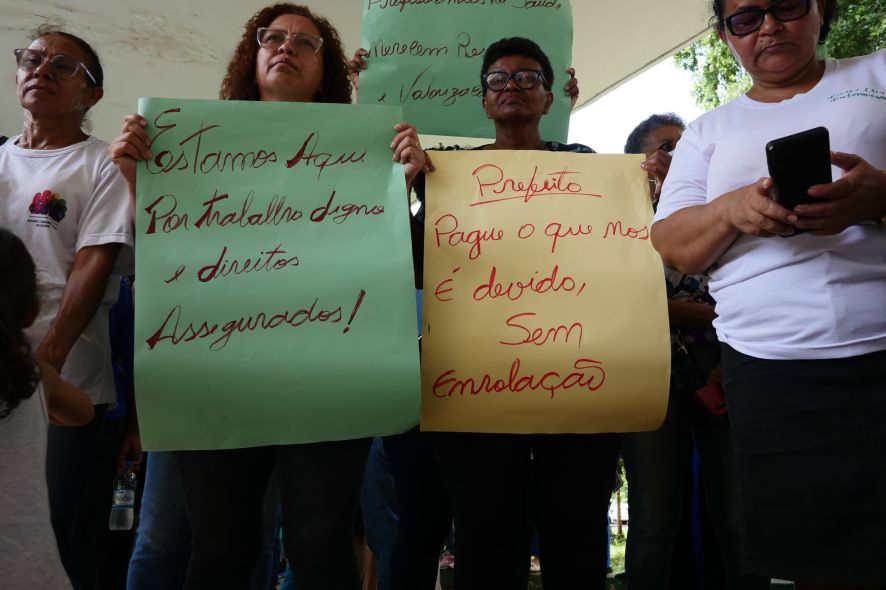 Profissionais da Saúde
Merecem Res
Valoriza
Estamos Aqui
Por trabalho digno
e direitos
Assegurados!
Prefeito
Pague o que nos
É devido,
Sem
Enrolação